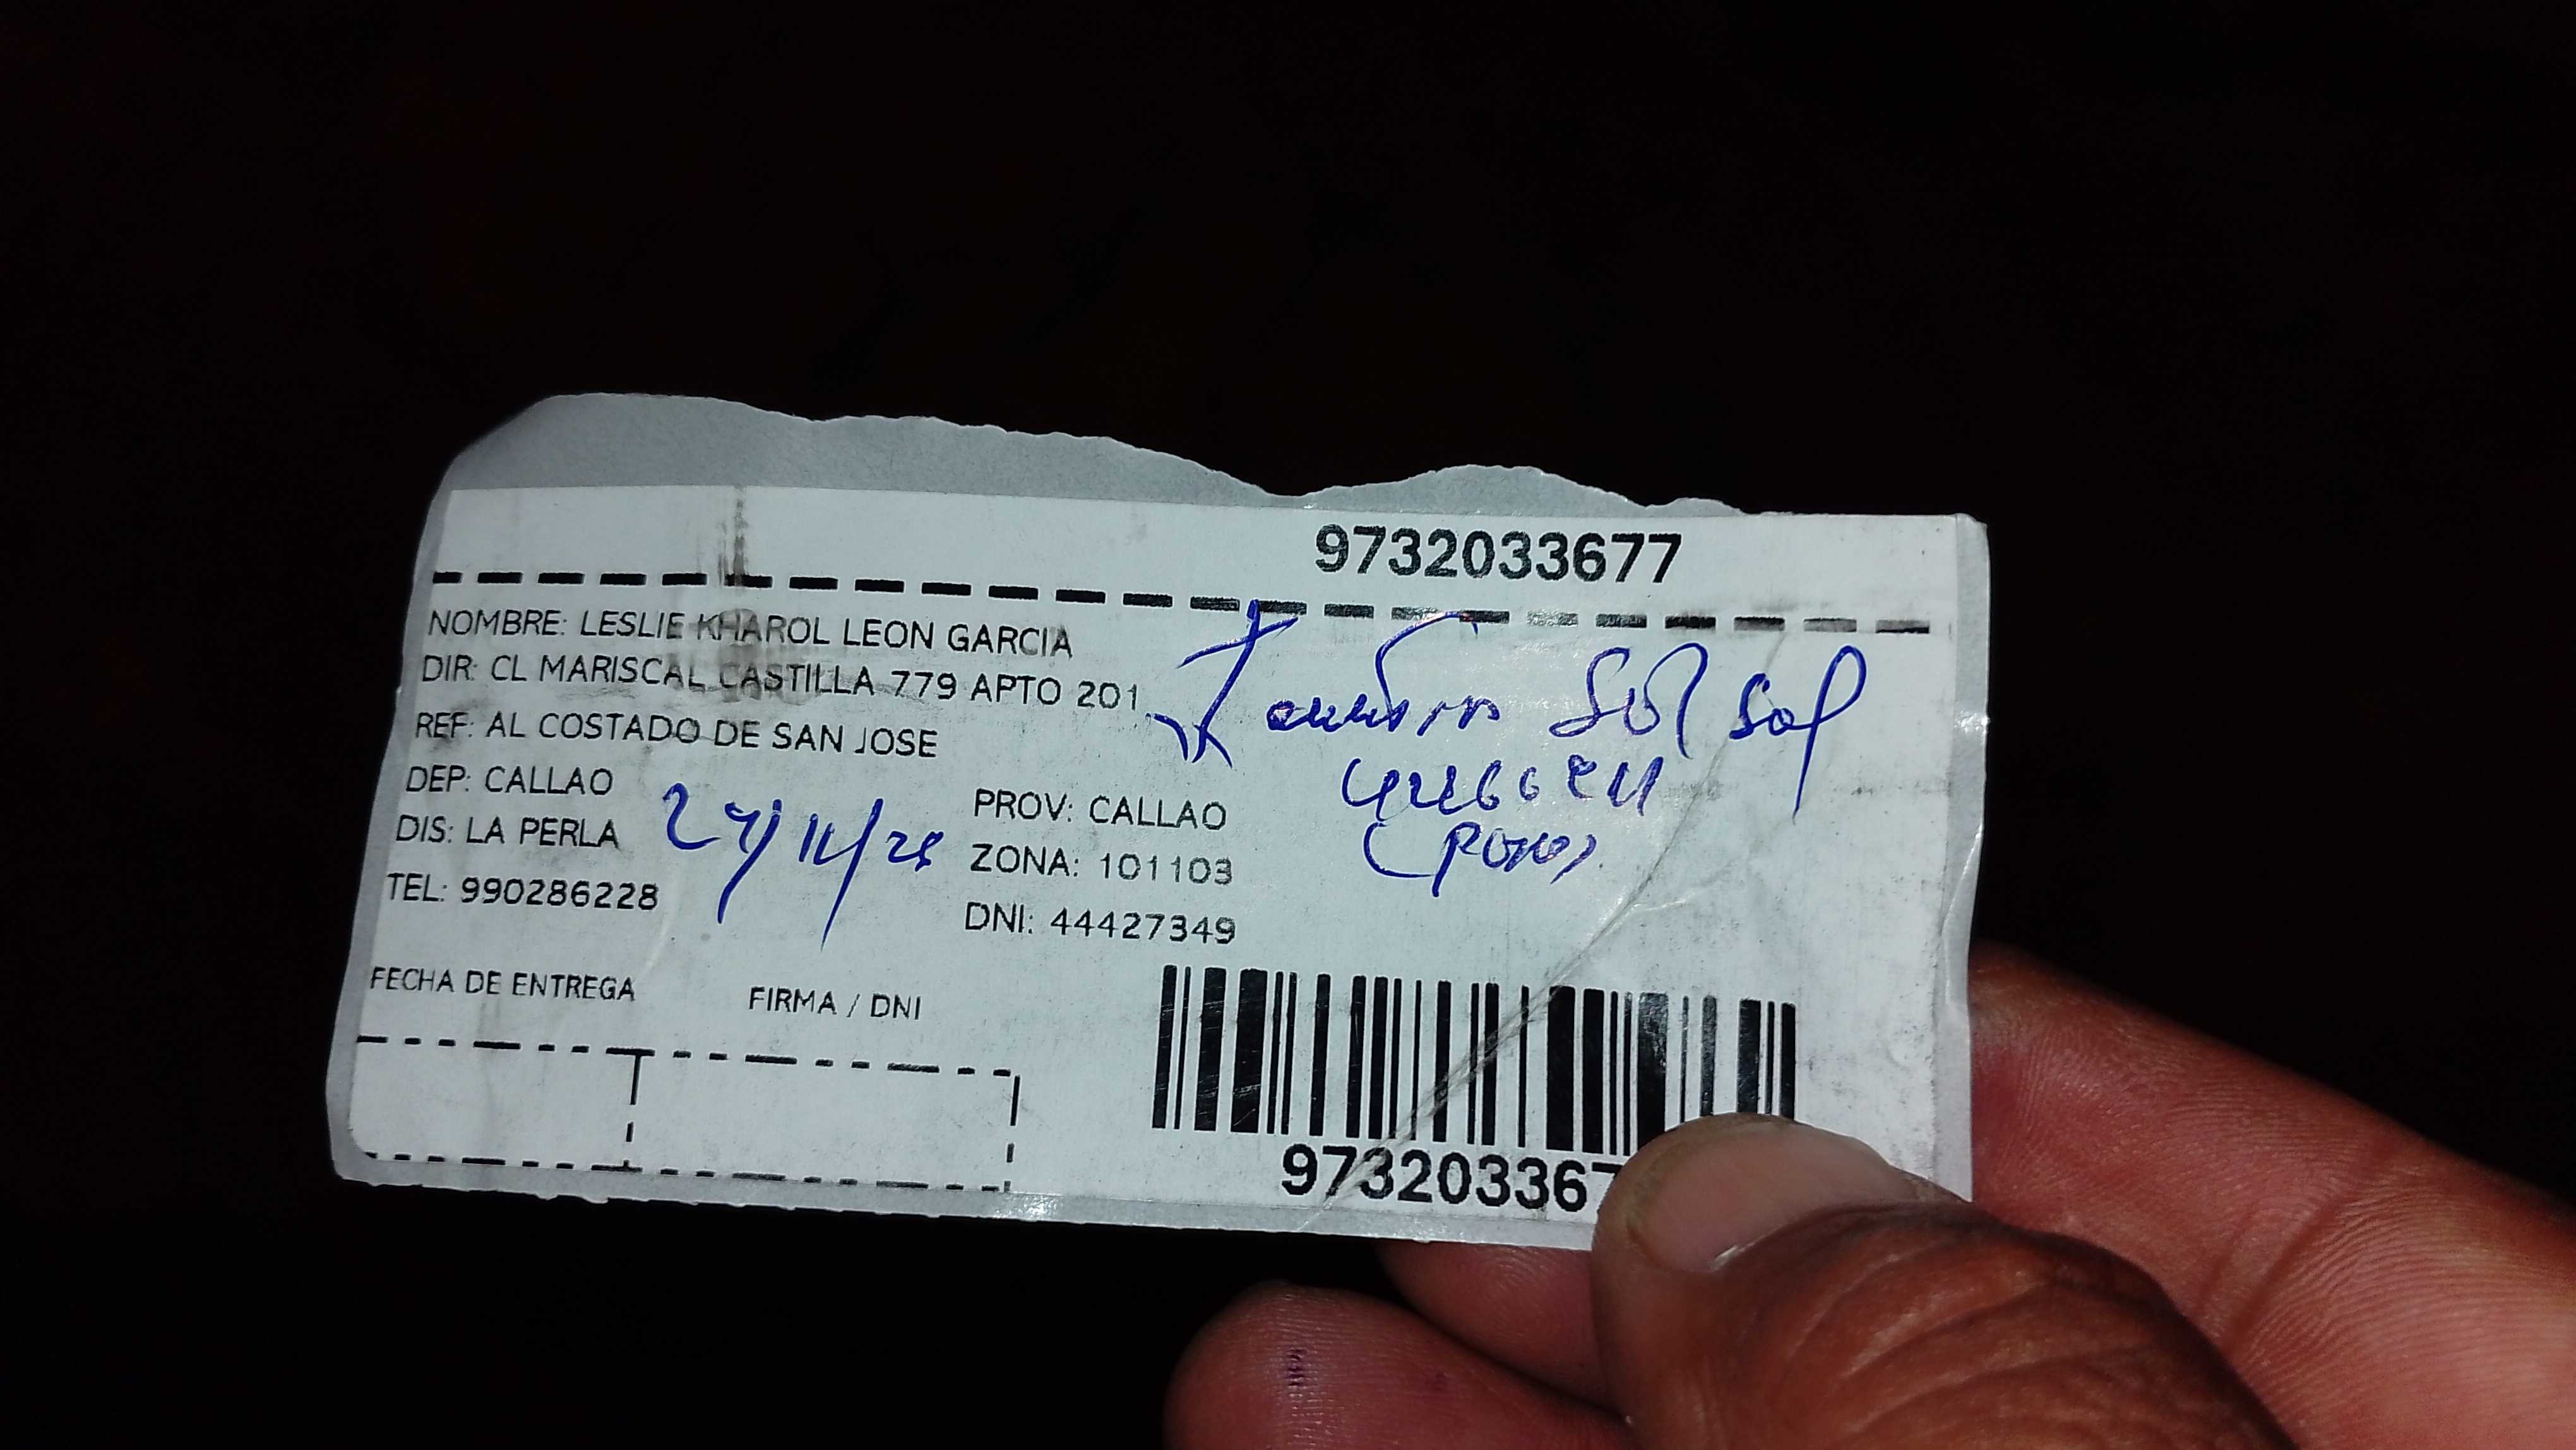 9732033677
NOMBRE: LESLIE KHAROL LEON GARCIA
DIR: CL MARISCAL CASTILLA 779 APTO 201
REF: AL COSTADO DE SAN JOSE
DEP: CALLAO
PROV: CALLAO
DIS: LA PERLA
ZONA: 101103
TEL: 990286228
DNI: 44427349
FECHA DE ENTREGA
FIRMA / DNI
973203367